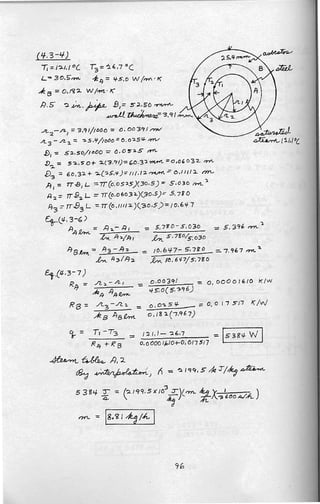 (4.3-4)
T₁ = 121.1°C   T₃ = 26.7°C
L = 30.5 m   k_A = 45.0 W/m·K
k_B = 0.182 W/m·K
A.5   2 in. pipe   D₁ = 52.50 mm
wall thickness = 3.91 mm
25.4 mm
asbestos
B
steel
A
T₃ T₂ T₁
r₁
r₂
r₃
saturated
steam, 121.1°C
r₂ - r₁ = 3.91/1000 = 0.00391 m
r₃ - r₂ = 25.4/1000 = 0.0254 m
D₁ = 52.50/1000 = 0.0525 m
D₂ = 52.50 + 2(3.91) = 60.32 mm = 0.06032 m
D₃ = 60.32 + 2(25.4) = 111.12 mm = 0.11112 m
A₁ = πD₁L = π(0.0525)(30.5) = 5.030 m²
A₂ = πD₂L = π(0.06032)(30.5) = 5.780
A₃ = πD₃L = π(0.1112)(30.5) = 10.647
Eq. (4.3-6)
A_A lm = (A₂ - A₁)/(ln A₂/A₁) = (5.780 - 5.030)/(ln 5.780/5.030) = 5.396 m²
A_B lm = (A₃ - A₂)/(ln A₃/A₂) = (10.647 - 5.780)/(ln 10.647/5.780) = 7.967 m²
Eq. (4.3-7)
R_A = (r₂ - r₁)/(k_A A_A lm) = 0.00391/(45.0(5.396)) = 0.00001610 K/W
R_B = (r₃ - r₂)/(k_B A_B lm) = 0.0254/(0.182(7.967)) = 0.017517 K/W
q = (T₁ - T₃)/(R_A + R_B) = (121.1 - 26.7)/(0.00001610 + 0.017517) = 5384 W
steam tables A.2
By interpolation, h = 2199.5 kJ/kg steam
5384 J/s = (2199.5 x 10³ J/kg)(m kg/h)(1/3600 s/h)
m = 8.81 kg/h
96